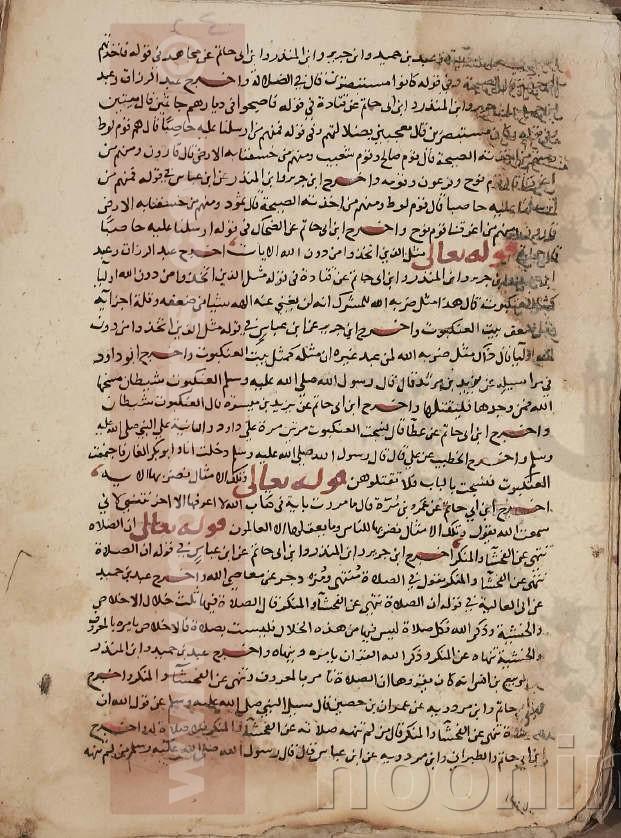 عبد بن حميد وابن جرير وابن المنذر وابن ابى حاتم عن مجاهد فى قوله فاخذتهم
وفى قوله كانوا مستبصرين قال فى الضلالة واخرج عبد الرزاق وعبد
جرير وابن المنذر وابن ابى حاتم عن قتادة فى قوله فاصبحوا فى ديارهم جاثمين قال ميتين
مستبصرين قال معجبين بضلالتهم وفى قوله فمنهم من ارسلنا عليه حاصبا قال هم قوم لوط
الصيحة قال قوم صالح وقوم شعيب ومنهم من خسفنا به الارض قال قارون ومنهم من
اغرقنا قال قوم نوح وفرعون وقومه واخرج ابن جرير وابن المنذر عن ابن عباس فى قوله فمنهم من
ارسلنا عليه حاصبا قال قوم لوط ومنهم من اخذته الصيحة قال ثمود ومنهم من خسفنا به الارض
قارون ومنهم من اغرقنا قوم نوح واخرج ابن ابى حاتم عن الضحاك فى قوله ارسلنا عليه حاصبا
قوله تعالى مثل الذين اتخذوا من دون الله الايات اخرج عبد الرزاق وعبد
جرير وابن المنذر وابن ابى حاتم عن قتادة فى قوله مثل الذين اتخذوا من دون الله اوليا
العنكبوت قال هذا مثل ضربه الله للمشرك انه لن يغنى عنه الهه شيا من ضعفه وقلة اجزائه
بيت العنكبوت واخرج ابن جرير عن ابن عباس فى قوله مثل الذين اتخذوا من دون
اوليا قال ذاك مثل ضربه الله لمن عبد غيره ان مثله كمثل بيت العنكبوت واخرج ابو داود
فى مراسيله عن يزيد بن مرثد قال قال رسول الله صلى الله عليه وسلم العنكبوت شيطان مسخها
الله فمن وجدها فليقتلها واخرج ابن ابى حاتم عن يزيد بن ميسرة قال العنكبوت شيطان
واخرج ابن ابى حاتم عن عطا قال نسجت العنكبوت مرتين مرة على داود والثانية على النبى صلى الله عليه
وسلم واخرج الخطيب عن على قال قال رسول الله صلى الله عليه وسلم دخلت انا وابو بكر الغار فاجتمعت
العنكبوت فنسجت بالباب فلا تقتلوهن قوله تعالى وتلك الامثال نضربها الاية
اخرج ابن ابى حاتم عن عمرو بن مرة قال ما مررت باية فى كتاب الله لا اعرفها الا احزنتنى لانى
سمعت الله يقول وتلك الامثال نضربها للناس وما يعقلها الا العالمون قوله تعالى ان الصلاة
تنهى عن الفحشا والمنكر اخرج ابن جرير وابن المنذر وابن ابى حاتم عن ابن عباس فى قوله ان الصلاة
تنهى عن الفحشا والمنكر يقول فى الصلاة منتهى ومزدجر عن معاصى الله واخرج عبد بن حميد
عن ابى العالية فى قوله ان الصلاة تنهى عن الفحشا والمنكر قال الصلاة فيها ثلث خلال الاخلاص
والخشية وذكر الله فكل صلاة ليس فيها من هذه الخلال فليست بصلاة فالاخلاص يامره بالمعروف
والخشية تنهاه عن المنكر وذكر الله القران يامره وينهاه واخرج عبد بن حميد وابن المنذر
كان يقروها ان الصلاة تامر بالمعروف وتنهى عن الفحشا والمنكر واخرج
حاتم وابن مردويه عن عمران بن حصين قال سيل النبى صلى الله عليه وسلم عن قول الله ان
تنهى عن الفحشا والمنكر قال من لم تنهه صلاته عن الفحشا والمنكر فلا صلاة له واخرج
ابن ابى حاتم والطبرانى وابن مردويه عن ابن عباس قال قال رسول الله صلى الله عليه وسلم من لم تنهه
noonin